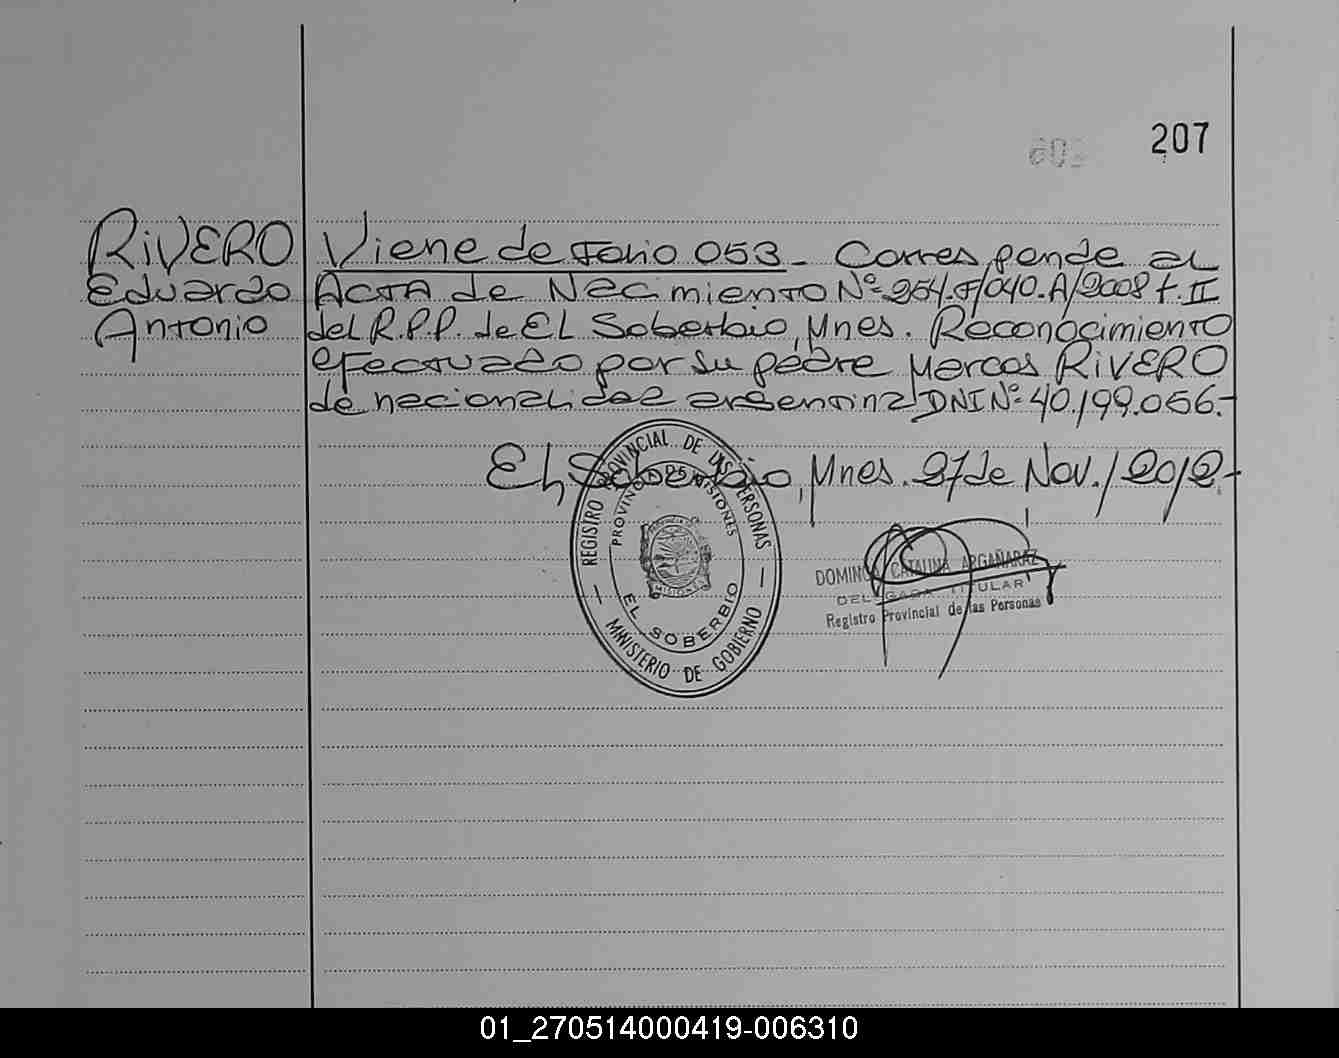 207
RIVERO
Eduardo
Antonio
Viene de Folio 053 - Corresponde al
Acta de Nacimiento Nº 254.F/040.A/2008 t. II
del R.P.P. de El Soberbio, Mnes. Reconocimiento
efectuado por su padre Marcos RIVERO
de nacionalidad argentina DNI Nº 40.199.056.-
El Soberbio, Mnes. 27 de Nov./2012.-
REGISTRO PROVINCIAL DE LAS PERSONAS
PROVINCIA DE MISIONES
MISIONES
EL SOBERBIO
MINISTERIO DE GOBIERNO
CATALINA ARGAÑARAZ
DELEGADA TITULAR
Registro Provincial de las Personas
01_270514000419-006310